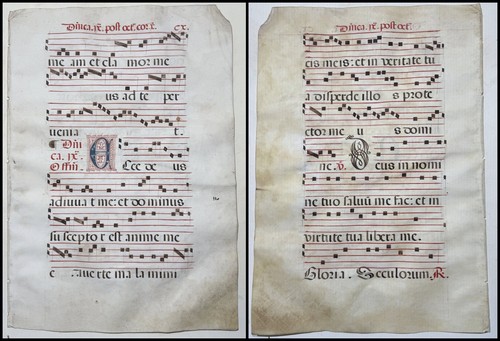 Dn̄ica. ix. post oct. cor. x̄. cx.
me am et cla mor me
us ad te per
ueniat t.
Dn̄i
ca. ix.
Offm̄. ECce de us
adiuuat me: et dominus
susceptor est anime me
e auerte mala inimi
Dn̄ica. ix. post oct.
cis meis: et in veritate tu
a disperde illos prote
ctor me u s domi
ne. v̄. Deus in nomi
ne tuo saluū me fac: et in
virtute tua libera me.
Gloria. Seculorum.